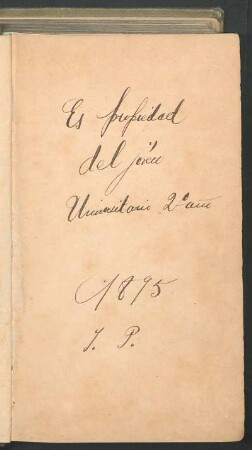 Es propiedad
del jóven
Universitario 2º año
1895
J. P.